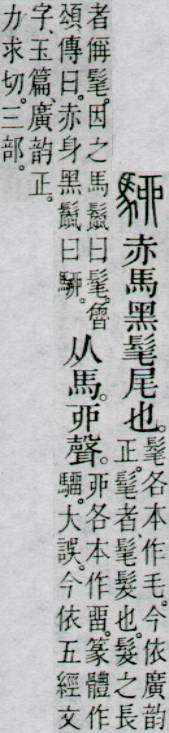 駵赤馬黑髦尾也。
髦各本作毛。今依廣韵
正。髦者、髦髮也。髮之長
者偁髦。因之馬鬣曰髦。魯
頌傳曰。赤身黑鬣曰駵。
从馬。丣聲。
丣各本作畱。篆體作
驑。大誤。今依五經文
字、玉篇、廣韵正。
力求切。三部。